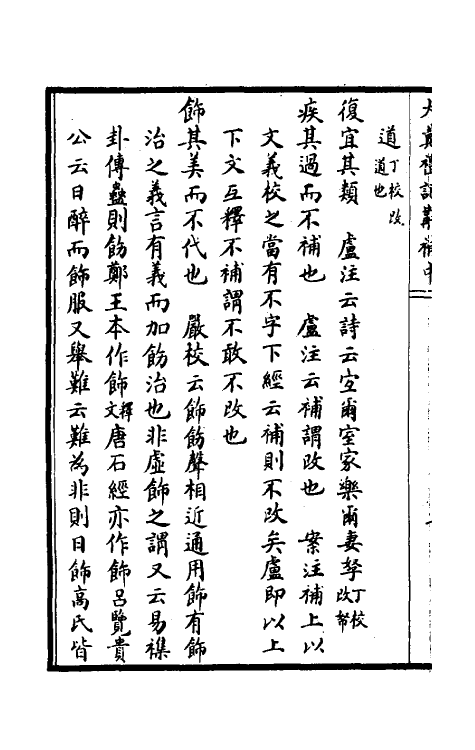 大戴禮記斠補中
道丁校改道也
復宜其類　盧注云詩云宜爾室家樂爾妻孥丁校改帑
疾其過而不補也　盧注云補謂改也　案注補上以
文義校之當有不字下經云補則不改矣盧即以上
下文互釋不補謂不敢不改也
飾其美而不代也　嚴校云飾飭聲相近通用飾有飾
治之義言有義而加飭治也非虛飾之謂又云易襍
卦傳蠱則飭鄭王本作飾釋文唐石經亦作飾呂覽貴
公云日醉而飾服又舉難云難為非則日飾高氏皆